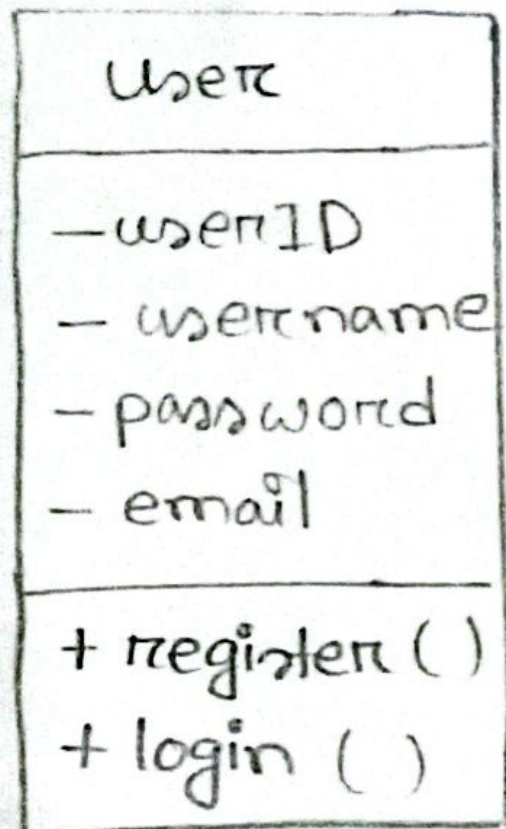 User
- userID
- username
- password
- email
+ register ( )
+ login ( )